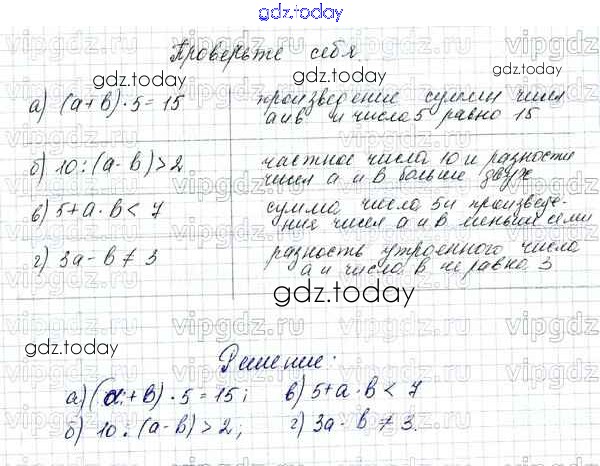 gdz.today
Проверьте себя.
gdz.today gdz.today
а) (а+в)·5=15 произведение суммы чисел
а и в и числа 5 равно 15
б) 10:(а-в)>2 частное числа 10 и разности
чисел а и в больше двух
в) 5+а·в<7 сумма числа 5 и произведе-
ние чисел а и в меньше семи
г) 3а-в≠3 разность утроенного числа
а и числа в не равно 3
gdz.today
gdz.today
Решение:
а) (а+в)·5=15; в) 5+а·в<7
б) 10:(а-в)>2; г) 3а-в≠3.
gdz.today